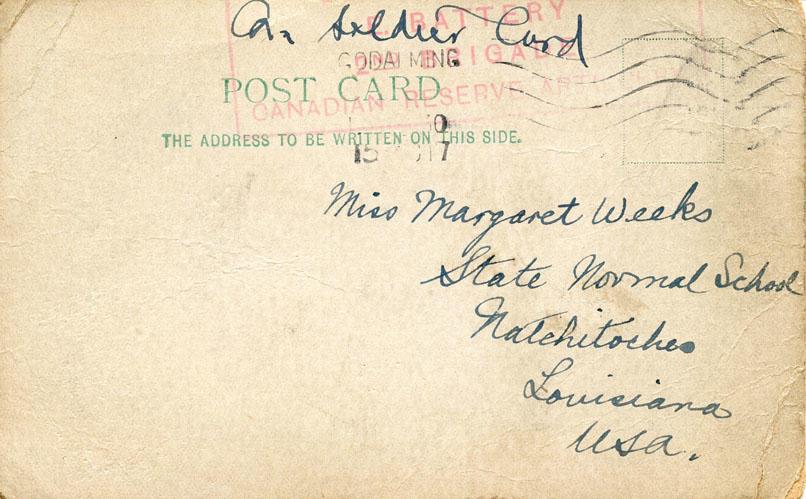 Can Soldier Card
E. BATTERY
GODALMING
2ND BRIGADE
POST CARD
CANADIAN RESERVE
THE ADDRESS TO BE WRITTEN ON THIS SIDE.
15 17
Miss Margaret Weeks
State Normal School
Natchitoches
Louisiana
USA.